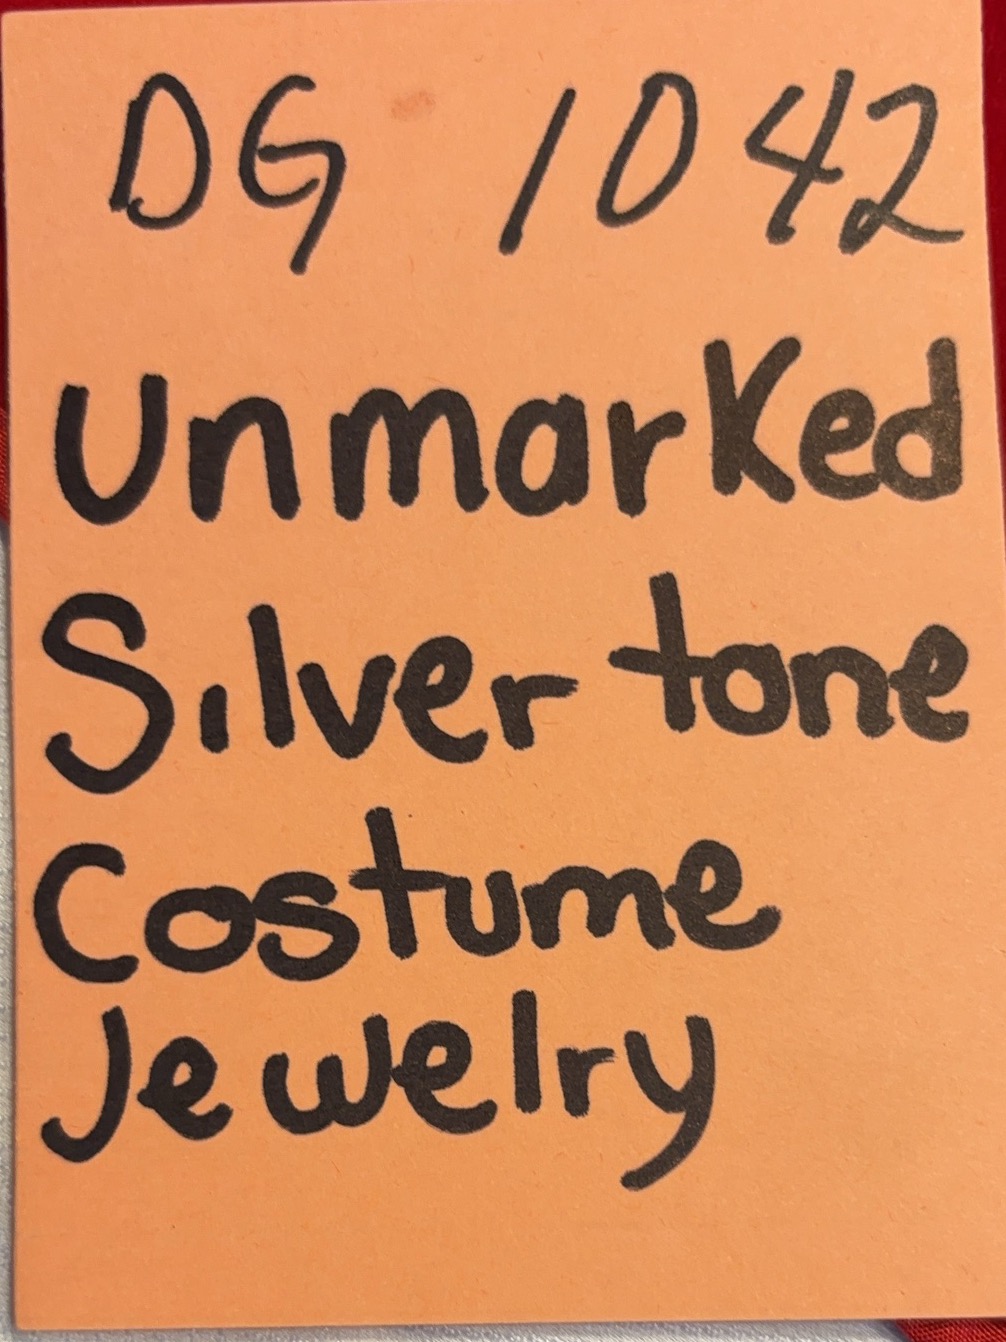 DG 1042
Unmarked
Silver tone
Costume
Jewelry